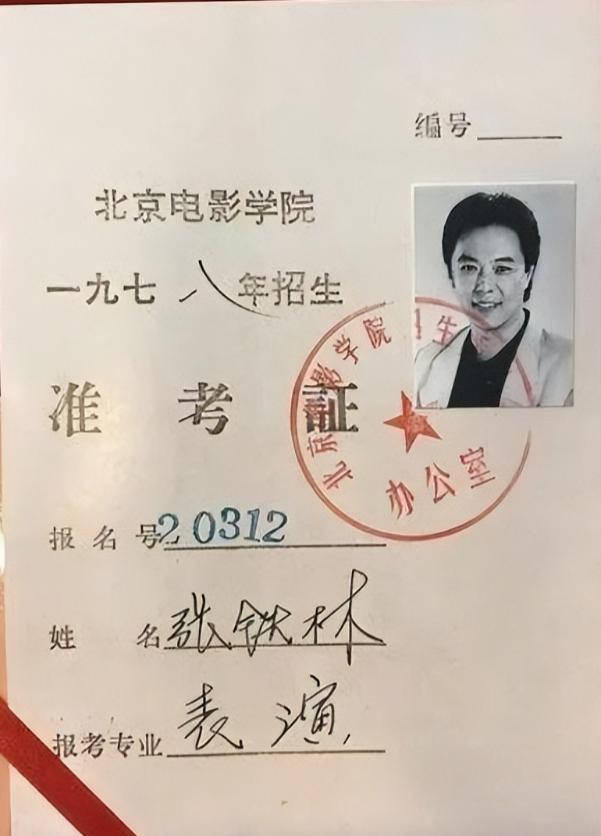 编号
北京电影学院
一九七八年招生
准考证
北京电影学院 生
办公室
报名号 20312
姓名 张铁林
报考专业 表演